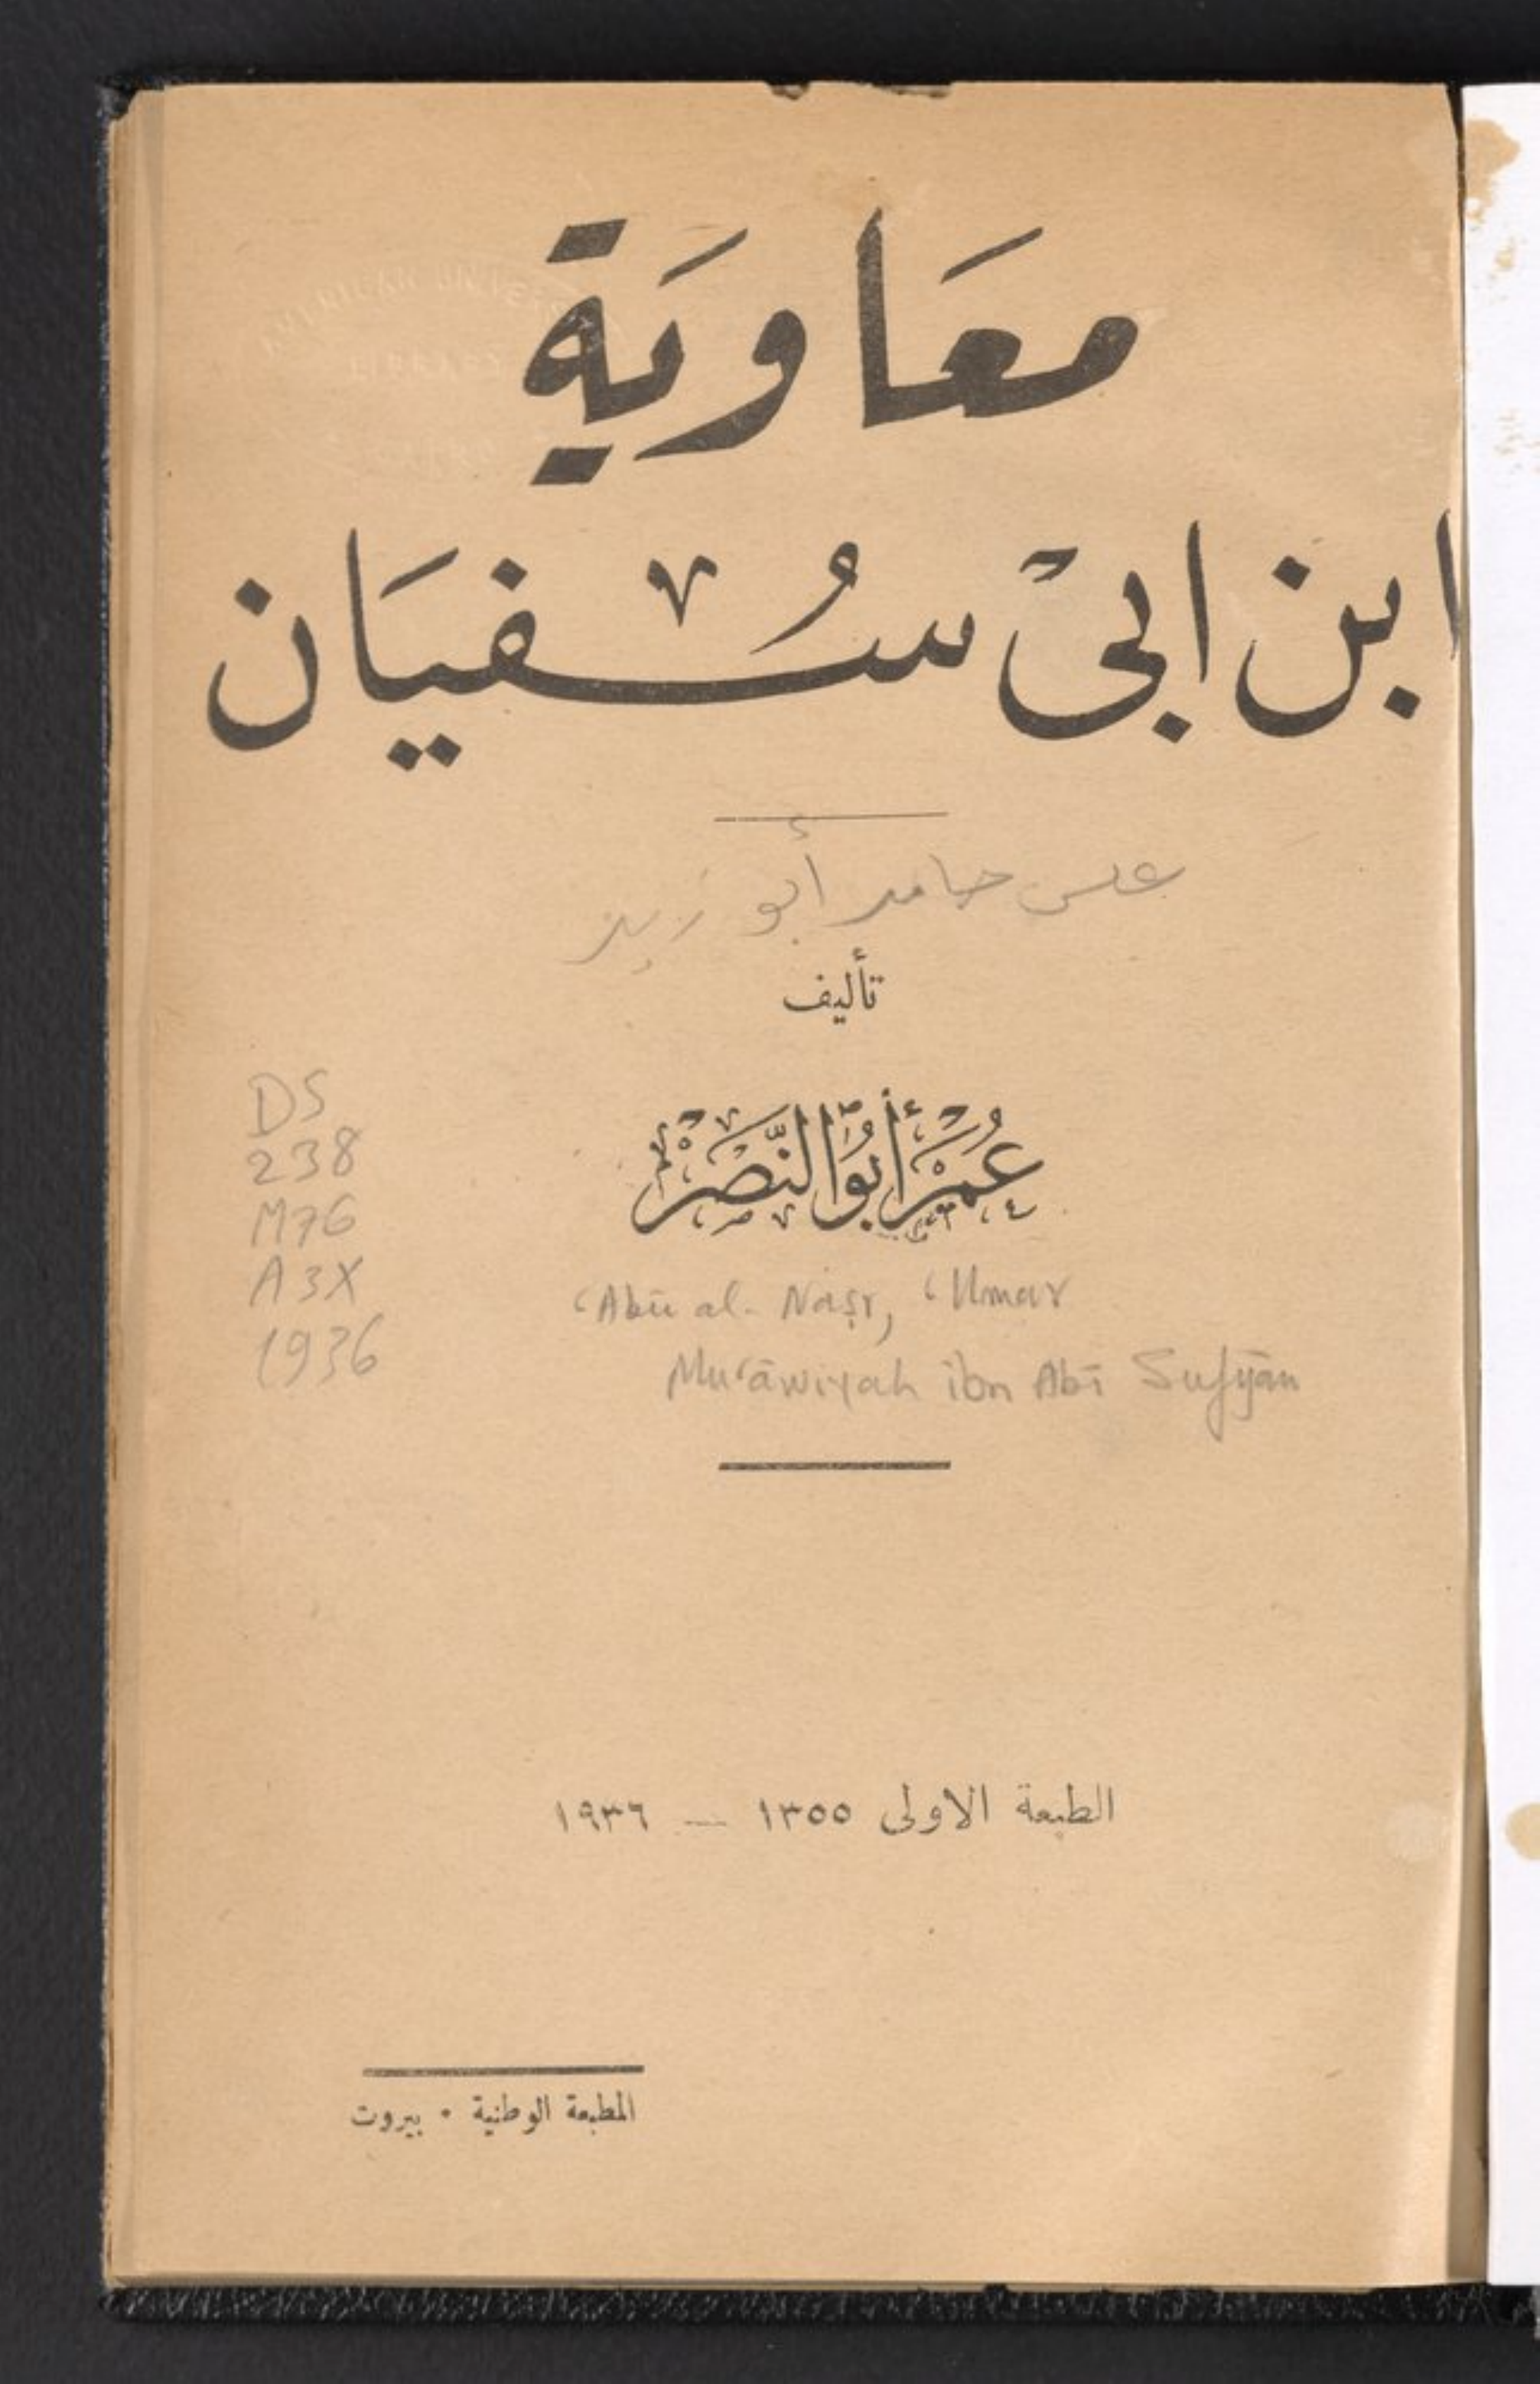 معَاويَة
ابن ابىْ سُفيَان
حامد أبو زيد
تأليف
عُمَرْ أَبُو النَّصَرْ
DS
238
M76
A3X
1936
‘Abū al-Naṣr, ‘Umar
Mu‘āwiyah ibn Abī Sufyān
الطبعة الاولى ١٣٥٥ — ١٩٣٦
المطبعة الوطنية • بيروت